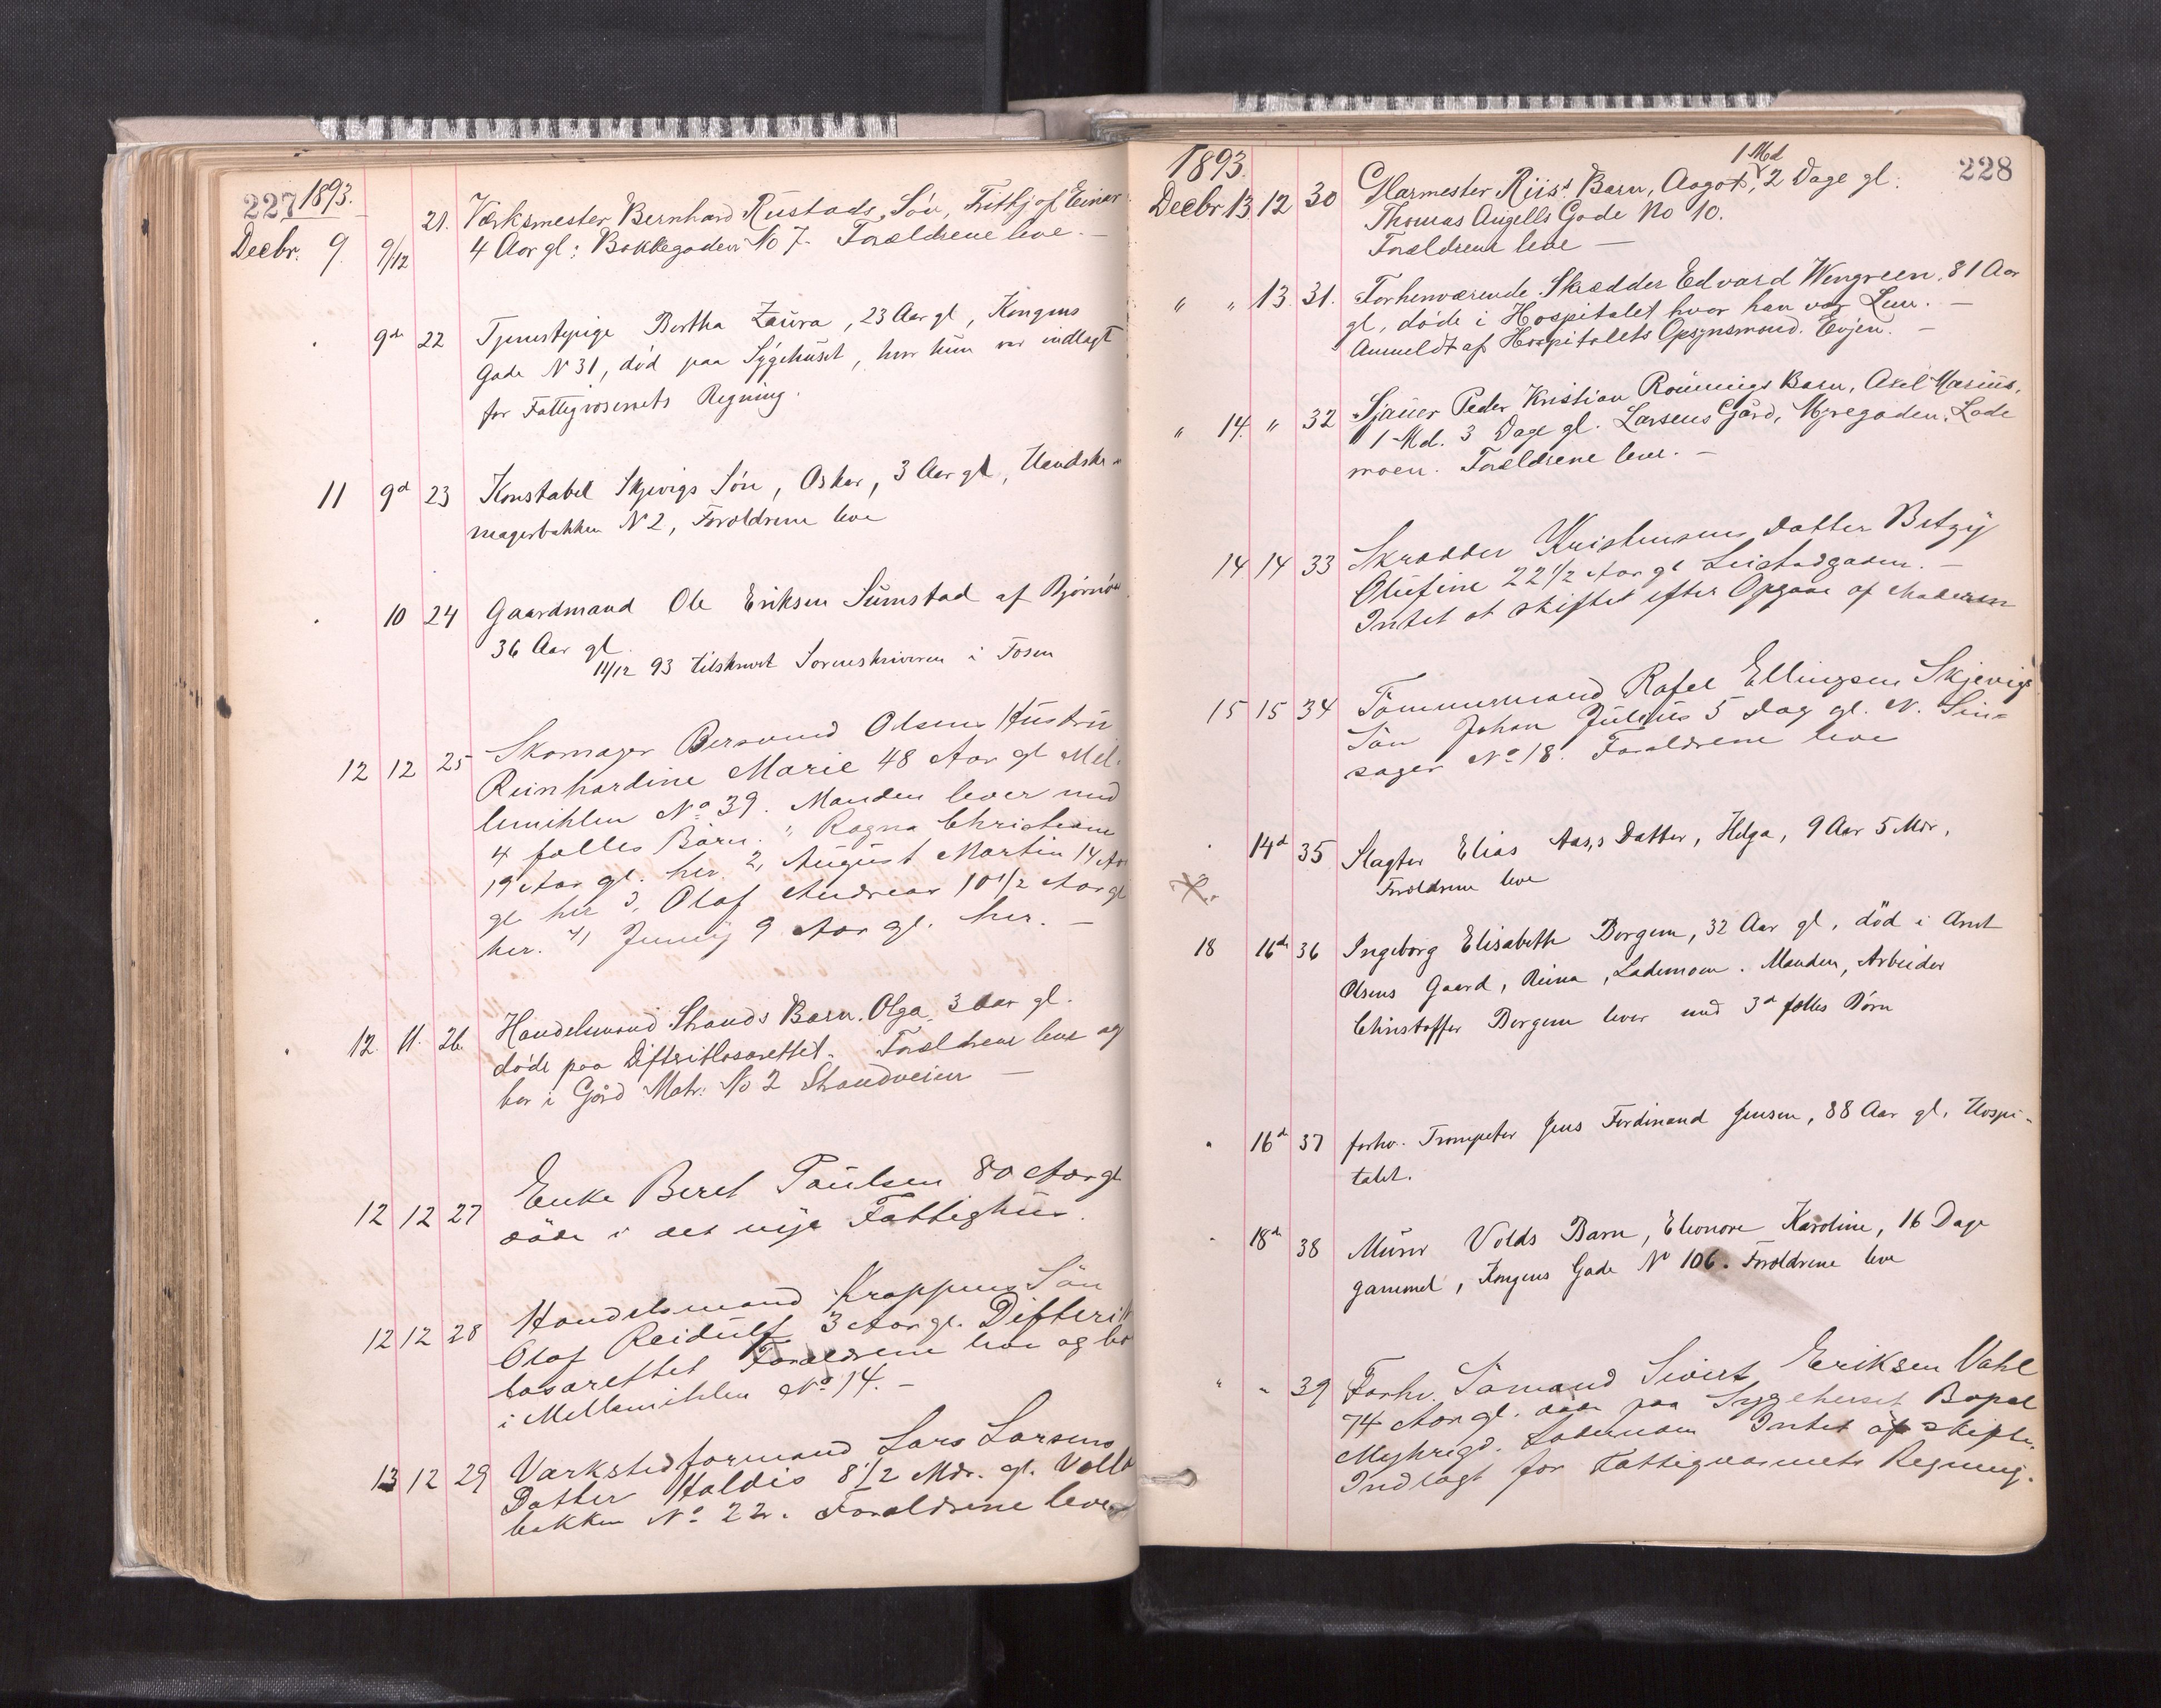 227 1893.
Decbr. 9. 9/12 21. Værksmester Bernhard Rustads Søn, Fritjof Einar
4 Aar gl: Bakkegaden No 7. Forældrene leve. —
" 9de 22 Tjenestepige Bertha Laura, 23 Aar gl, Kongens
Gade N 31, död paa Sygehuset, hvor hun var indlagt
for Fattigvæsenets Regning.
11 9d 23 Konstabel Skjevigs Sön, Oskar, 3 Aar gl, Handske-
magerbakken N 2, Forældrene leve
" 10 24 Gaardmand Ole Eriksen Sumstad af Björnör
36 Aar gl.
11/12 93 tilskrevet Sorenskriveren i Fosen
12 12 25 Skomager Bersvend Olsens Hustru
Reinhardine Marie 48 Aar gl Mel-
lemihlen No 39. Manden lever med
4 fælles Börn. 1, Ragna Christiane
19 Aar gl. her 2, August Martin 14 Aar
gl. her 3, Olaf Andreas 10 1/2 Aar gl
her. 4, Jenny 9 Aar gl. her. —
" 12. 11. 26. Handelsmand Strands Barn. Olga. 3 Aar gl.
døde paa Difteritlasarettet. Forældrene leve og
bor i Gård Matr: No 2 Strandveien —
12 12 27 Enke Beret Paulsen 80 Aar gl
döde i det nye Fattighus.
12 12 28 Handelsmand Kroppens Sön
Olaf Reidulf 3 Aar gl. Difterit
lasarettet Forældrene leve og bor
i Mellemihlen No 14. —
13 12 29 Værkstedformand Lars Larsens
Datter Haldis 8 1/2 Mdr. gl. Volla
bakken No 22. Forældrene leve
228
1893.
1 Md
Decbr 13 12 30 Glarmester Riis's Barn, Aagot, 2 Dage gl:
Thomas Angells Gade No 10.
Forældrene leve —
" " 13. 31. Forhenværende Skrædder Edvard Wengreen, 81 Aar
gl, døde i Hospitalet hvor han var Lem. —
Anmeldt af Hospitalets Opsynsmand. Evjen. —
" 14. " 32 Sjauer Peder Kristian Rønnings Barn, Axel Marius,
1 Md. 3 Dage gl. Larsens Gård, Myregaden, Lade
moen. Forældrene leve. —
14 14 33 Skrædder Kristensens Datter Betzy
Olufine 22 1/2 Aar gl Leistadgaden. —
Intet at skifte efter Opgave af Moderen
15 15 34 Tömmermand Rafel Ellingsen Skjevigs
Sön Johan Julius 5 Dag gl. N. Sin-
sager No 18. Forældrene leve
" 14d 35 Slagter Elias Aas,s Datter, Helga, 9 Aar 5 Mdr,
Forældrene leve
18 16de 36 Ingeborg Elisabeth Borgem, 32 Aar gl, död i Arnt
Olsens Gaard, Reina, Lademoen. Manden, Arbeider
Christoffer Borgem lever med 3d fælles Börn
" 16de 37 forhv. Trompeter Jens Ferdinand Jensen, 88 Aar gl, Hospi-
talet.
" 18de 38 Murer Volds Barn, Eleonore Karoline, 16 Dage
gammel, Kongens Gade No 106. Forældrene leve
" " 39 Forhv. Sömand Sivert Eriksen Vahl
74 Aar gl. döde paa Sygehuset Bopæl
Myhrigd. Lademoen Intet at skifte.
Indlagt for Fattigvæsenets Regning.